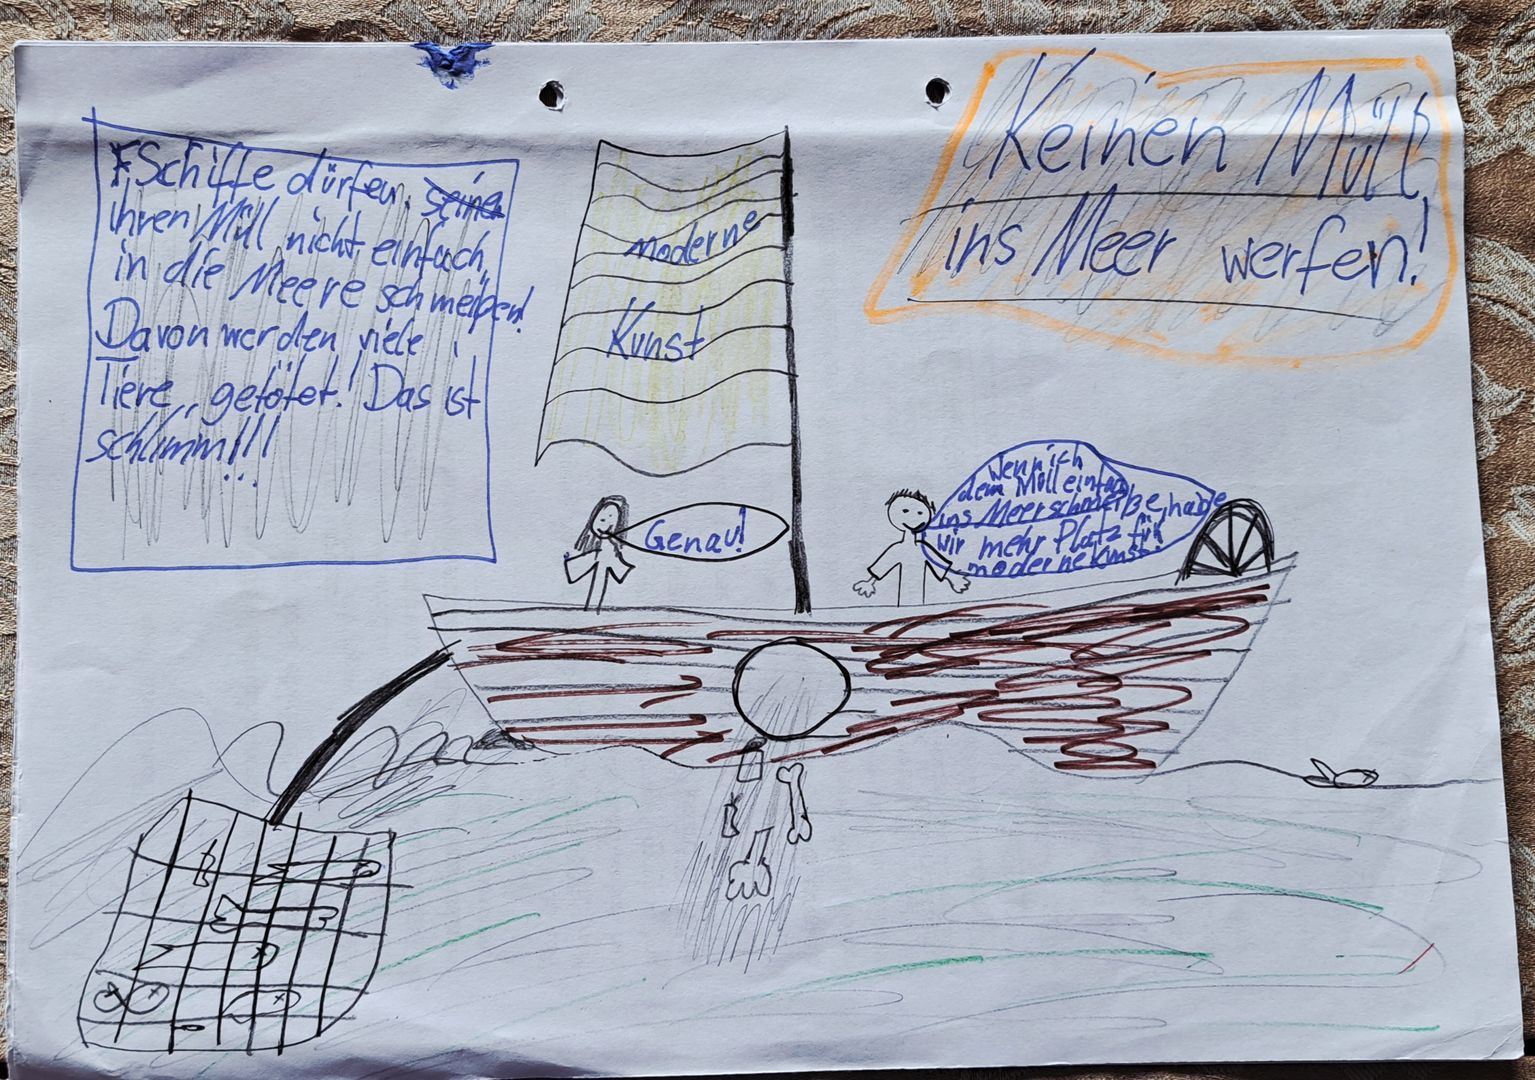 Schiffe dürfen seinen
ihren Müll nicht einfach
in die Meere schmeißen!
Davon werden viele
Tiere getötet! Das ist
schlimm!!!
moderne
Kunst
Keinen Müll
ins Meer werfen!
Genau!
Wenn ich
dem Müll einfach
ins Meer schmeiße, habe
wir mehr Platz für
moderne Kunst!